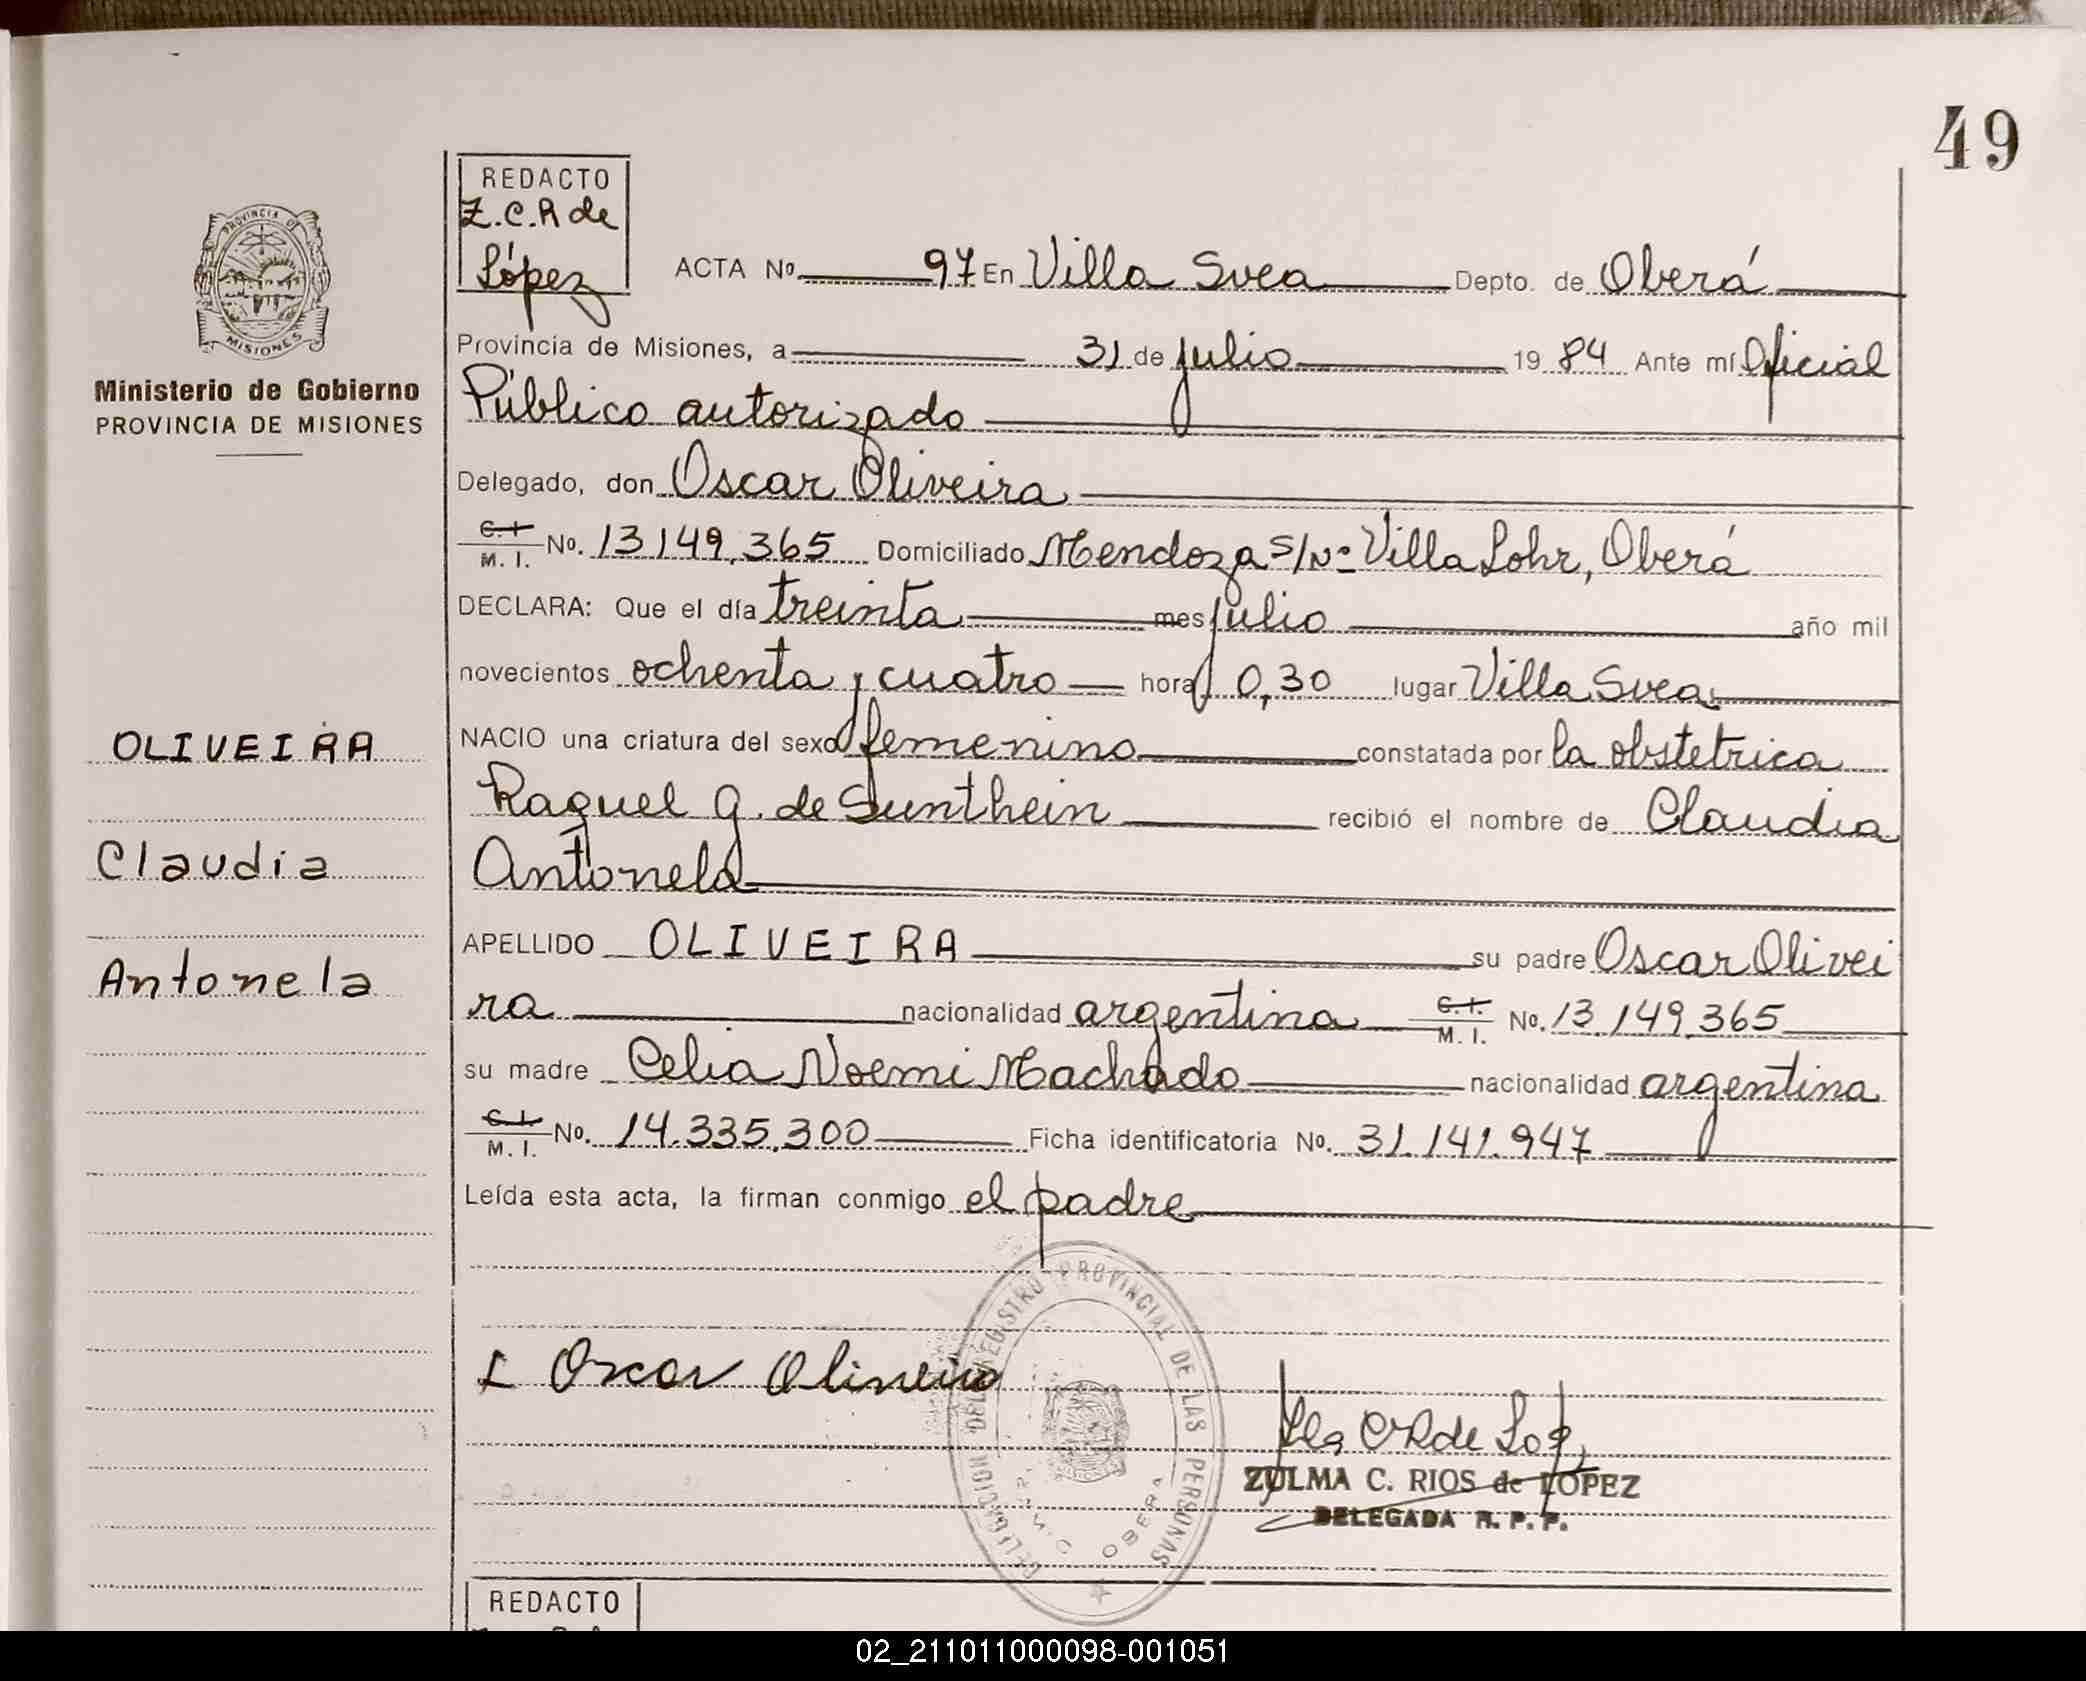 49
REDACTO
Z.C.R de
López
PROVINCIA DE
MISIONES
Ministerio de Gobierno
PROVINCIA DE MISIONES
OLIVEIRA
Claudia
Antonela
ACTA No 97 En Villa Svea Depto. de Oberá
Provincia de Misiones, a 31 de julio 19 84 Ante mí Oficial
Público autorizado
Delegado, don Oscar Oliveira
C.I. M. I. No. 13149,365 Domiciliado Mendoza S/Nº Villa Lohr, Oberá
DECLARA: Que el día treinta mes julio año mil
novecientos ochenta y cuatro hora 0,30 lugar Villa Svea
NACIO una criatura del sexo femenino constatada por la obstetrica
Raquel G. de Sunthein recibió el nombre de Claudia
Antonela
APELLIDO OLIVEIRA su padre Oscar Olivei
ra nacionalidad argentina C.I. M. I. No. 13.149.365
su madre Celia Noemi Machado nacionalidad argentina
C.I. M. I. No. 14.335.300 Ficha identificatoria No. 31.141.947
Leída esta acta, la firman conmigo el padre
DELEGACION DEL REGISTRO PROVINCIAL DE LAS PERSONAS
OBERA
Oscar Oliveira
ZULMA C. RIOS de LOPEZ
DELEGADA R. P. P.
REDACTO
02_211011000098-001051